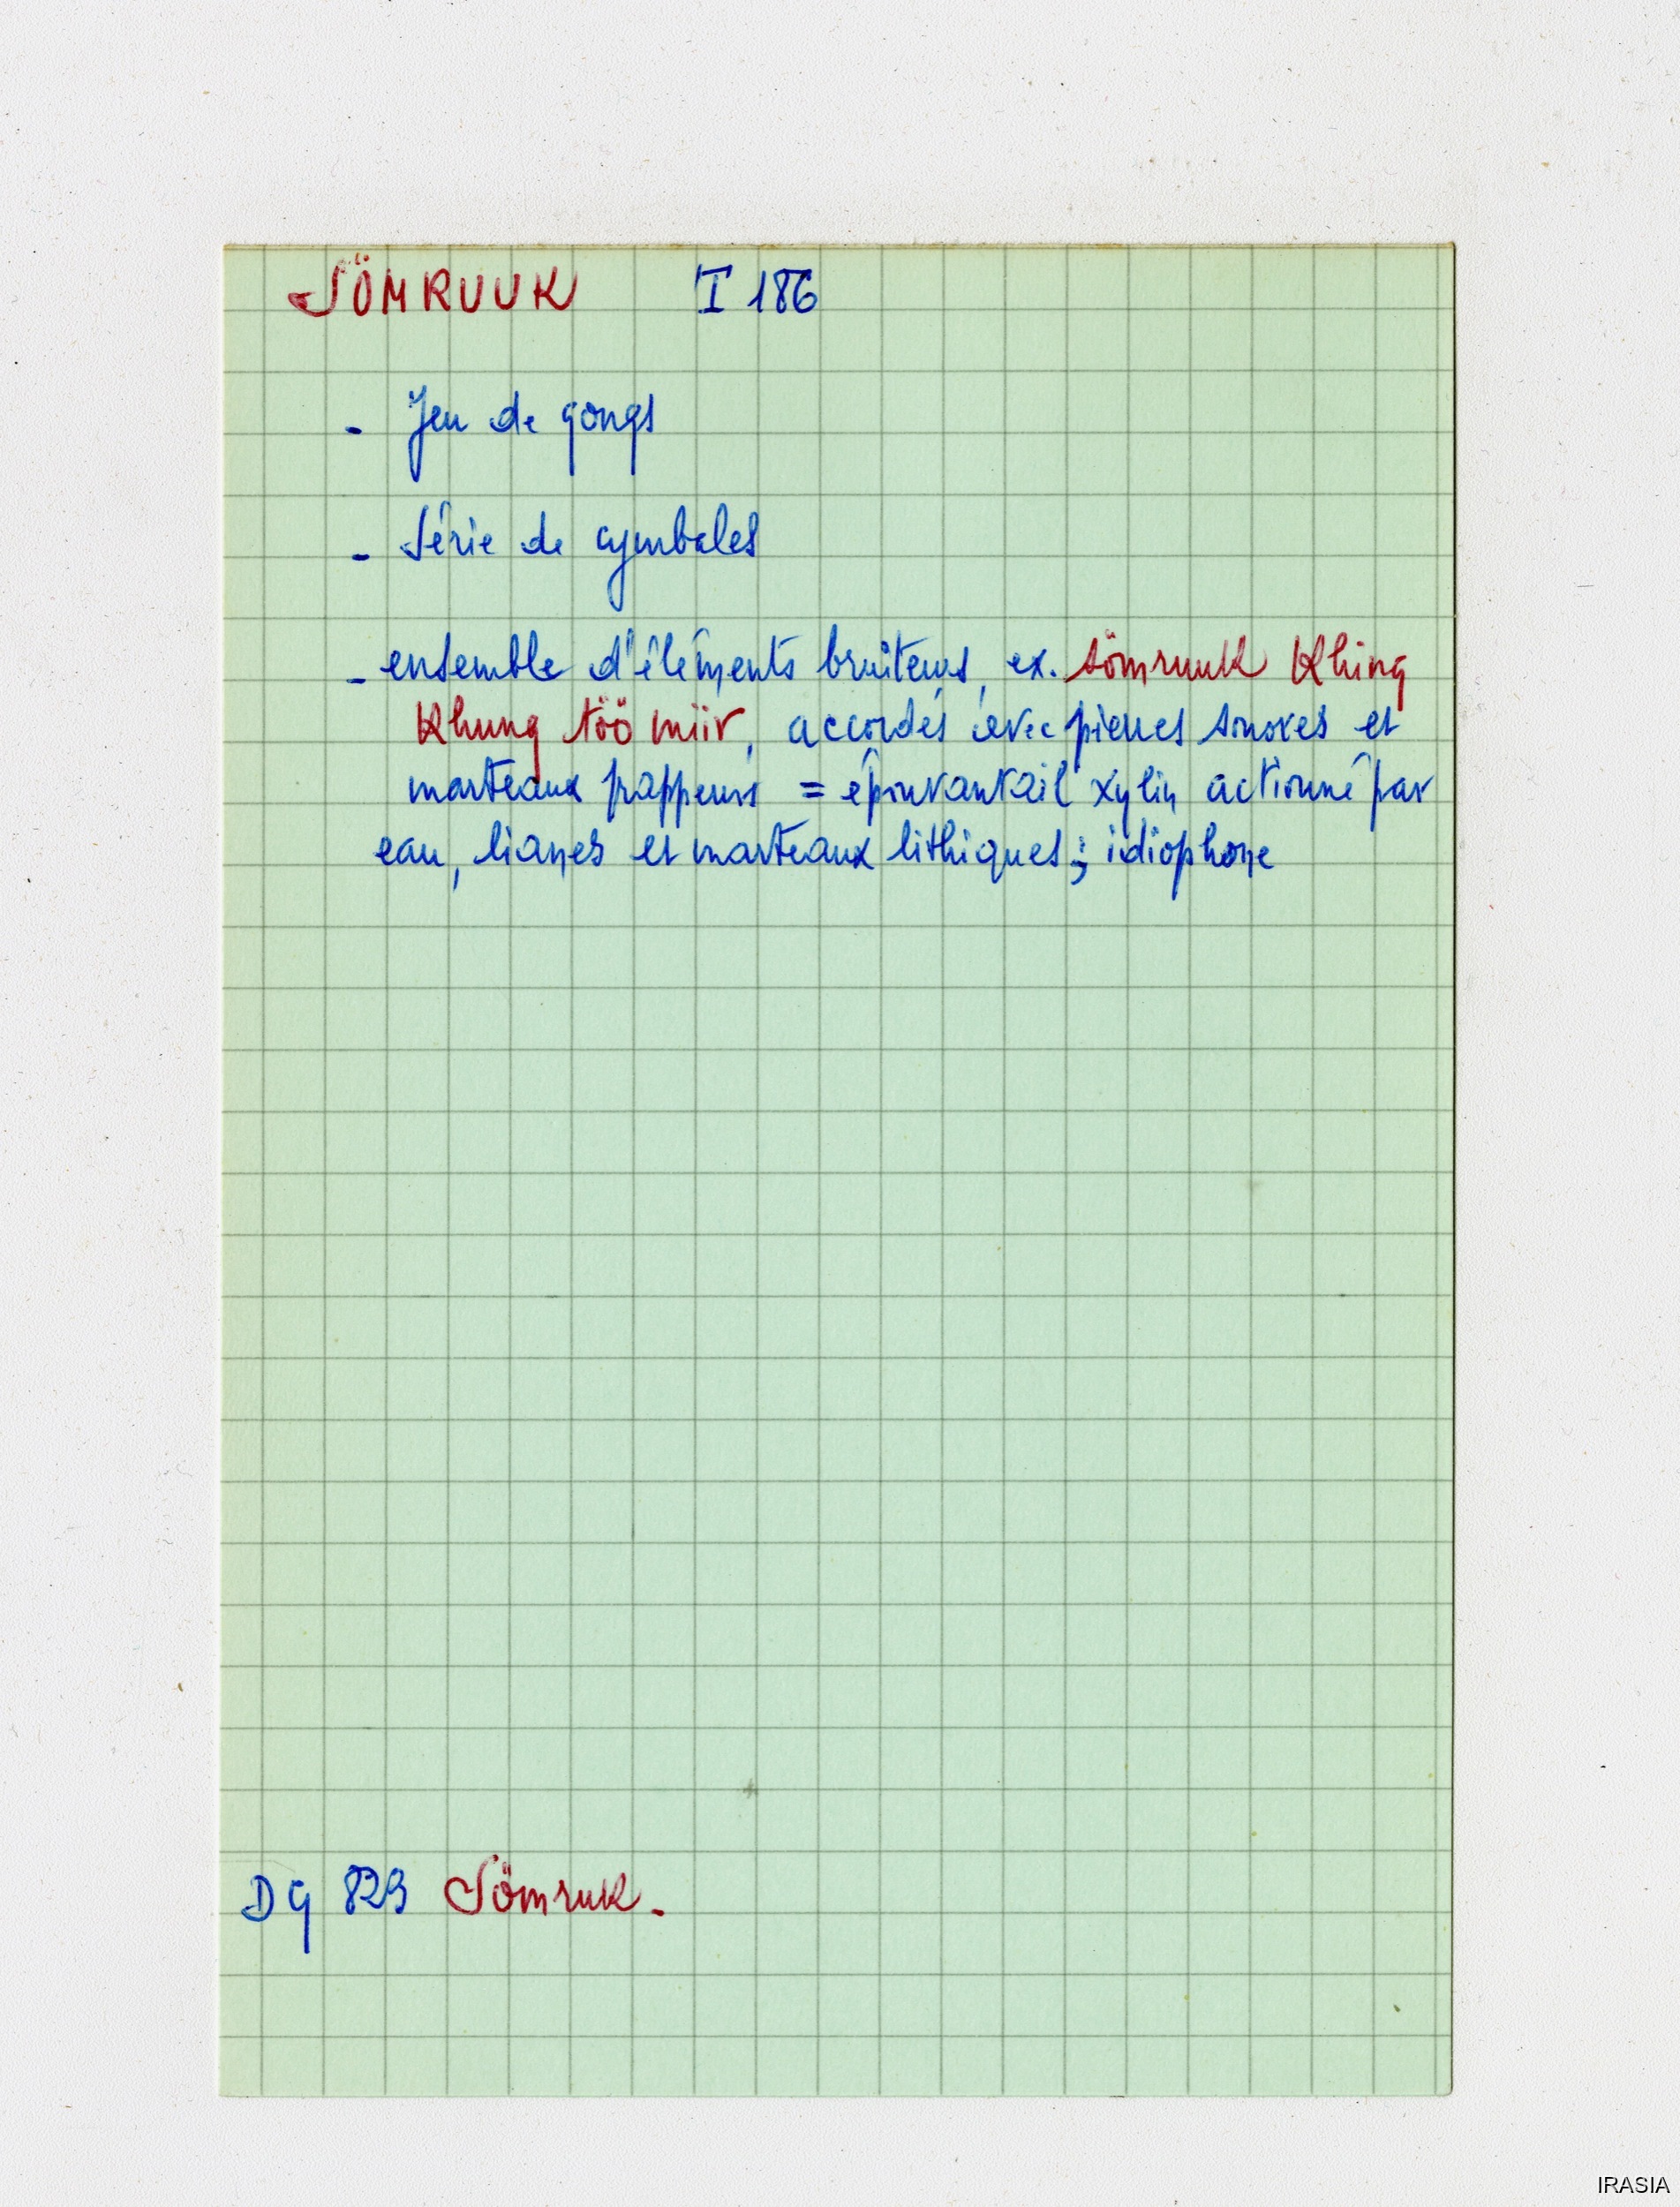 SÖMRUUK I 186
- Jeu de gongs
- Série de cymbales
- ensemble d'éléments bruiteurs, ex. sömruuk Khing
Khung töö miir, accordés avec pierres sonores et
marteaux frappeurs = épouvantail xylin actionné par
eau, lianes et marteaux lithiques ; idiophone
DG 829 Sömruk.
IRASIA